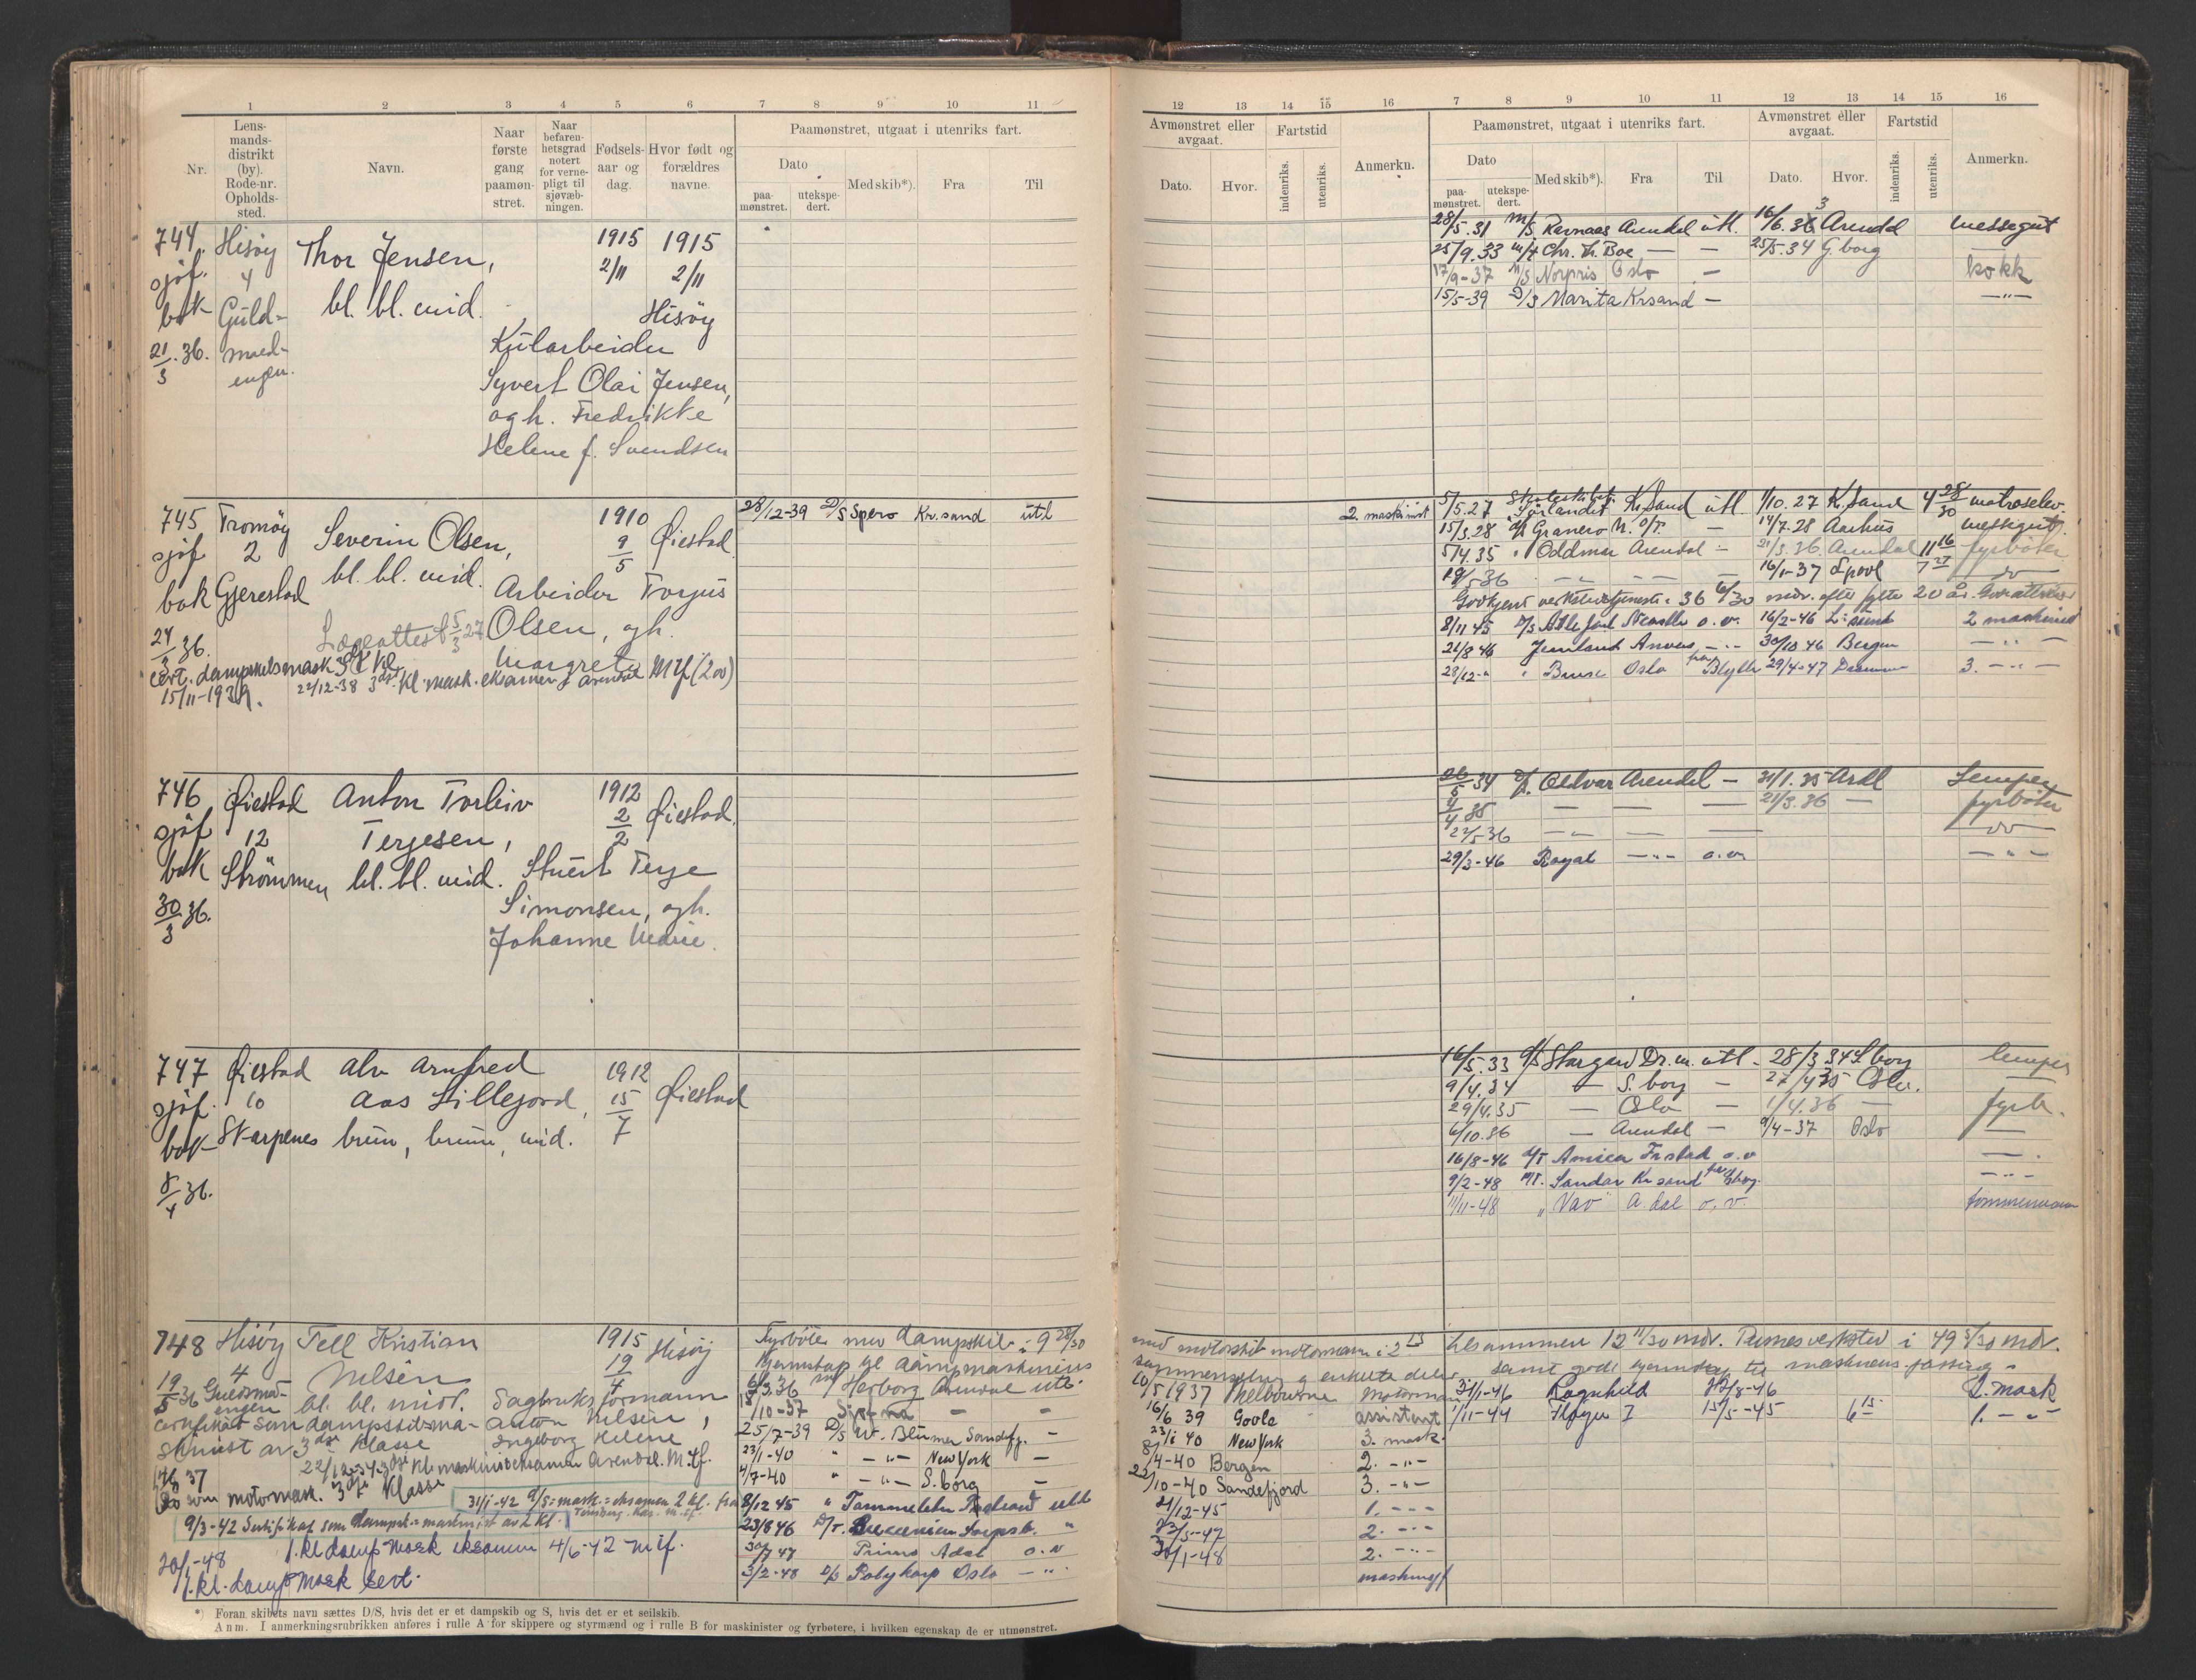 1 2 3 4 5 6 7 8 9 10 11
Nr.
Lens-
mands-
distrikt
(by).
Rode-nr.
Opholds-
sted.
Navn.
Naar
første
gang
paamøn-
stret.
Naar
befaren-
hetsgrad
notert
for verne-
pligt til
sjøvæb-
ningen.
Fødsels-
aar og
dag.
Hvor født og
forældres
navne.
Paamønstret, utgaat i utenriks fart.
Dato
paa-
mønstret.
utekspe-
dert.
Med skib*).
Fra
Til
744 Hisøy Thor Jensen, 1915 1915
sjøf. 4 bl. bl. mid. 2/11 2/11
bok Guld- Hisøy
21/3.36. smed- Kularbeider
engen. Syvert Olai Jensen,
og h. Fredrikke
Helene f. Svendsen
745 Tromøy Severin Olsen, 1910 Øiestad
sjøf. 2 bl. bl. mid. 9/5
bok Gjerestad Arbeider Torjus
24/3 36. Lægeattest 5/3 27 Olsen, og h.
Margrete
15/11-1939. 22/12-38 3dje Kl. mask. eksamen f Arendal M tf (200)
28/12-39 D/S Spero Kr.sand utl
746 Øiestad Anton Torleiv 1912
sjøf 12 Terjesen, 2/2 Øiestad.
bok Strømmen bl. bl. mid. Stuert Terje
30/3 36. Simonsen, og h.
Johanne Marie.
747 Øiestad Alv Arnfred 1912
sjøf. 10 Aas Lillejord, 15/7 Øiestad
bok Skarpenes brun, brune, mid.
8/4 36.
748 Hisøy Tell Kristian 1915 Hisøj
4 Nilsen 19/4
19/5 36 Guldsme- bl. bl. midl. Sagbruksformann
engen
certifikat som dampskibsma- Anton Nilsen,
skinist av 3dje Klasse Ingeborg Helene
Kl. maskinisteksamen Arendal. M. tf.
Do som motormask. 3dje Klasse
31/1-42 D/S=mask.=eksamen 2 kl. fra
9/3-42 Sertifikat som Dampsk.=maskinist av 2 kl. Tønsberg. Kar. m. tf.
20/1-48 1. kl. damp mask eksamen 4/6-42 m tf.
1. kl. damp mask sert.
Fyrbøter med dampskib i 9 28/30
Kjennskap til dampmaskinens
6/3.36 M/ Herborg Arendal utl.
/10-37
25/7-39 D/S W. Blumer Sandefj. -
23/1-40 " -"- New York -
4/7-40 " -"- S.borg -
8/12 45 "
23/8 46 D/T.
30/7 47 Primo Adal o.v
3/2-48 D/S Polykarp Oslo -"-
*) Foran skibets navn sættes D/S, hvis det er et dampskib og S, hvis det er et seilskib.
Anm. I anmerkningsrubrikken anføres i rulle A for skippere og styrmænd og i rulle B for maskinister og fyrbøtere, i hvilken egenskap de er utmønstret.
12 13 14 15 16 7 8 9 10 11 12 13 14 15 16
Avmønstret eller
avgaat.
Dato.
Hvor.
Fartstid
indenriks.
utenriks.
Anmerkn.
Paamønstret, utgaat i utenriks fart.
Dato
paa-
mønstret.
utekspe-
dert.
Med skib*).
Fra
Til
Avmønstret eller
avgaat.
Dato.
Hvor.
Fartstid
indenriks.
utenriks.
Anmerkn.
28/5.31 M/S Ravnaas Arendal utl. 16/6.33 Arendal messegut
25/9.33 M/T Chr. Th. Boe — — 25/5.34 G.borg
17/9-37 M/S Norpris Oslo - kokk
15/5-39 D/S Marita Krsand - -"-
2. maskinist 5/5.27 Skoleskibet Sørlandet K.Sand utl. 1/10.27 K.Sand 4 28/30 matroselev.
15/3.28 D/S Granero M. O/T. - 14/7.28 Aarhus messegut
5/4 35 " Oddmar Arendal - 21/3.36. Arendal 11 16 fyrbøter
16/1-37 Lpool 7 27 do
Godkjent verkstedstjeneste: 36 6/30 mdr. efter fylte 20 år.
8/11 45 D/S o.v. 16/2-46 2 maskinist
21/8 46 Jemtland Anvers -"- 30/10 46 Bergen -"-
28/12-" " Oslo fra Blyth 29/4-47 3. -"-
26/5 34 D/S. Oddvar Arendal - 31/1.35 Ardl Lemper
4/4 35 — — — 21/3.36 — fyrbøter
22/5-36 — — — do
29/3-46 Royal -"- o.v. -"-
16/5.33 D/S Stargard Dr.m. utl. 28/3 34 S.borg lemper
9/4.34 — S.borg — 27/4 35 Oslo.
29/4.35 — Oslo — 1/4.36 — fyrb.
6/10.36 — Arendal - 9/4-37 Oslo —
16/8-46 M/T o.v -"-
9/2-48 M/T. Sandar Kr sand fra Gbog. -"-
11/11-48 " Vav A.dal o.v. tømmermann
med motorskib motormann i 2 13 tilsammen 12 11/30 mdr. verksted i 49 5/30 mdr.
sammensetning og enkelte deler samt godt kjennskap til maskinens pasning.
10/5 1937 Melbourne Motormann 31/1-46 Ragnhild /8-46 2. mask
16/6 39 Goole assistent 1/11-44 15/5-45 6 15 1. -"-
23/1 40 New York 3. mask.
8/4-40 Bergen 2. -"-
22/10-40 Sandefjord 3. -"-
21/12-45 1. -"-
23/5-47 2. -"-
30/1-48 2. -"-